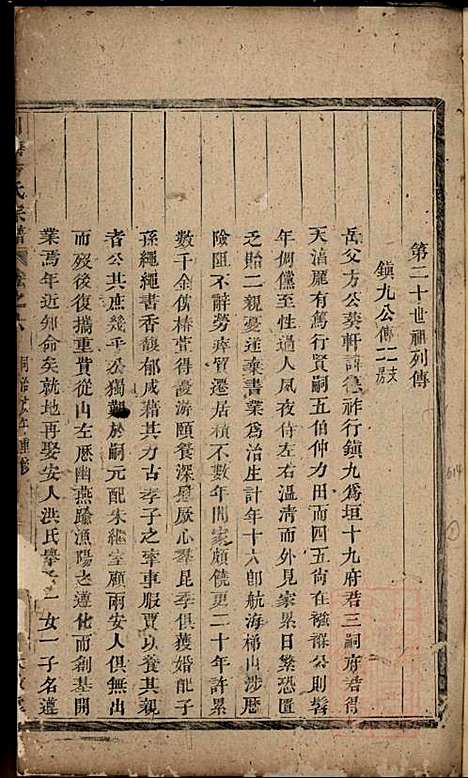 第二十世祖列傳
鎮九公傳 二支 二房
岳父方公葵軒諱德祚行鎮九爲垣十九府君三嗣府君得
天湻龎有篤行賢嗣五伯仲力田而四五尙在襁褓公則髫
年倜儻至性過人夙夜侍左右溫凊而外見家累日繁恐匱
乏貽二親憂遂棄書業爲治生計年十六卽航海梯山涉歷
險阻不辭勞瘁貿遷居積不數年閒家頗饒更二十年許累
數千金俾椿萱得優游頤養深慰厥心羣昆季俱獲婚配子
孫繩繩書香馥郁咸藉其力古孝子之牽車服賈以養其親
者公其庶幾乎公獨艱於嗣元配朱繼室顧兩安人俱無出
而歿後復攜重貲從山左歷幽燕踰漁陽之遵化而剏基開
業焉年近知命矣就地再娶安人洪氏舉 一女一子名遵
氏宗譜 卷之八